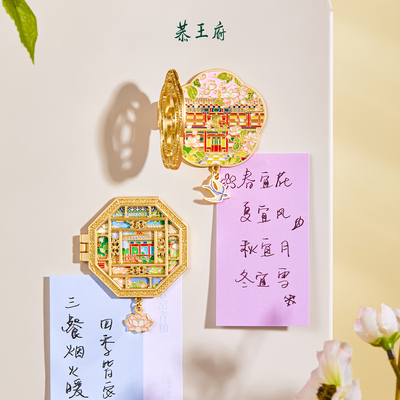 恭王府
春宜花
夏宜风
秋宜月
冬宜雪
三餐烟火暖
四季皆安